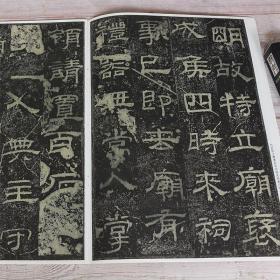 明故特立廟褒
成侯四時來祠
事已即去廟有
禮器無常人掌
領請置百石
一人典主守